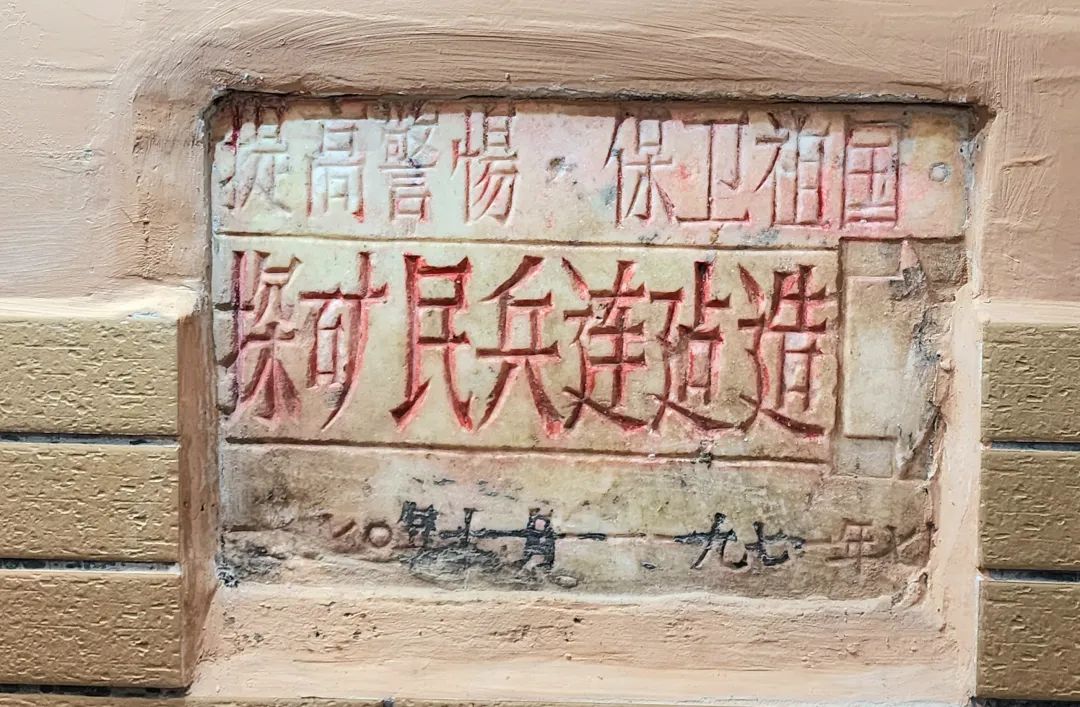 提高警惕·保卫祖国。
探矿民兵连建造
〇年十一月—一九七一年